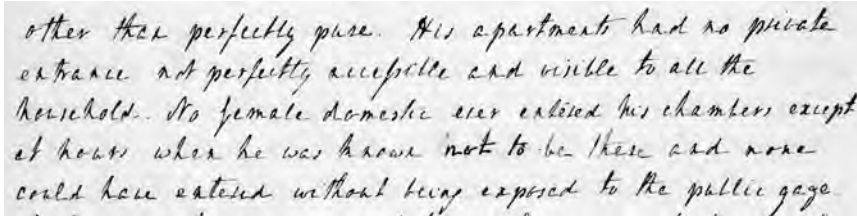 other than perfectly pure. His apartments had no private
entrance not perfectly accessible and visible to all the
household. No female domestic ever entered his chambers except
at hours when he was known not to be there and none
could have entered without being exposed to the public gaze